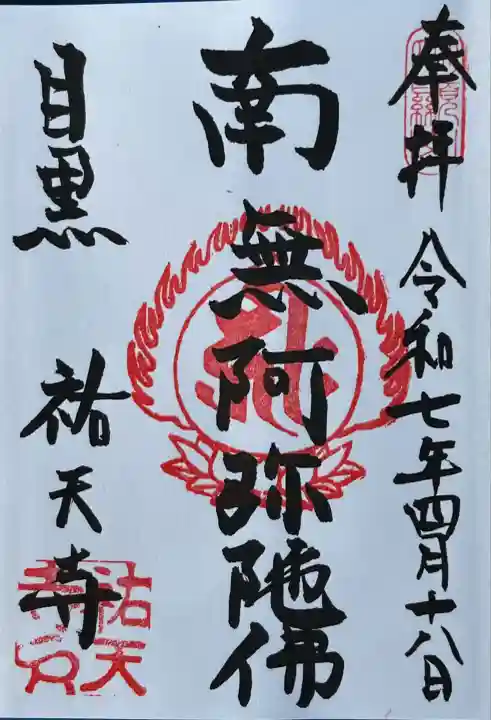 奉拝 令和七年四月十八日
南無阿弥陁佛
目黒 祐天寺